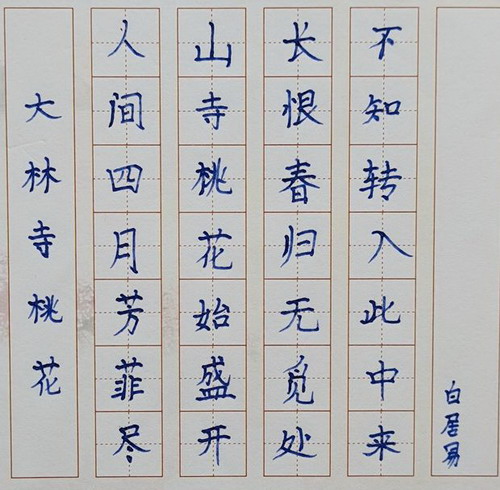 大林寺桃花
人间四月芳菲尽
山寺桃花始盛开
长恨春归无觅处
不知转入此中来
白居易